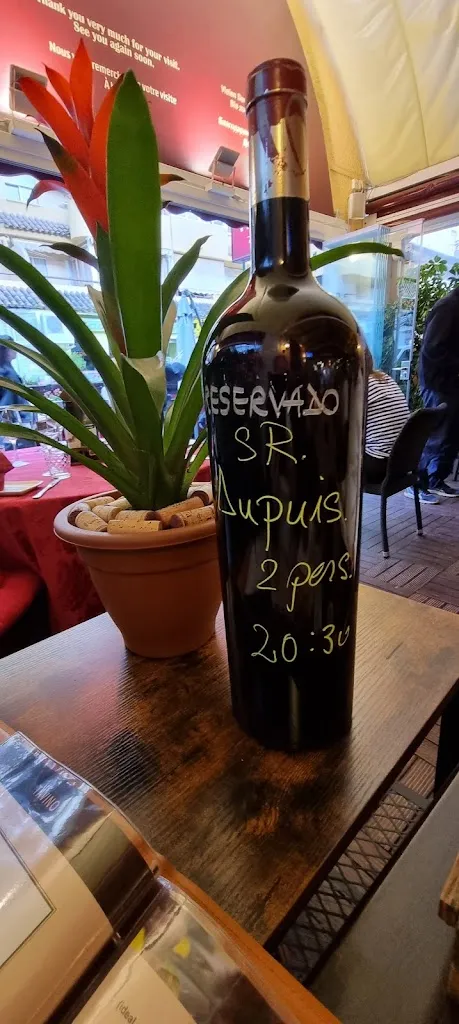 Thank you very much for your visit.
See you again soon.
votre visite
RESERVADO
SR.
Dupuis.
2 pers.
20:30
(ideal